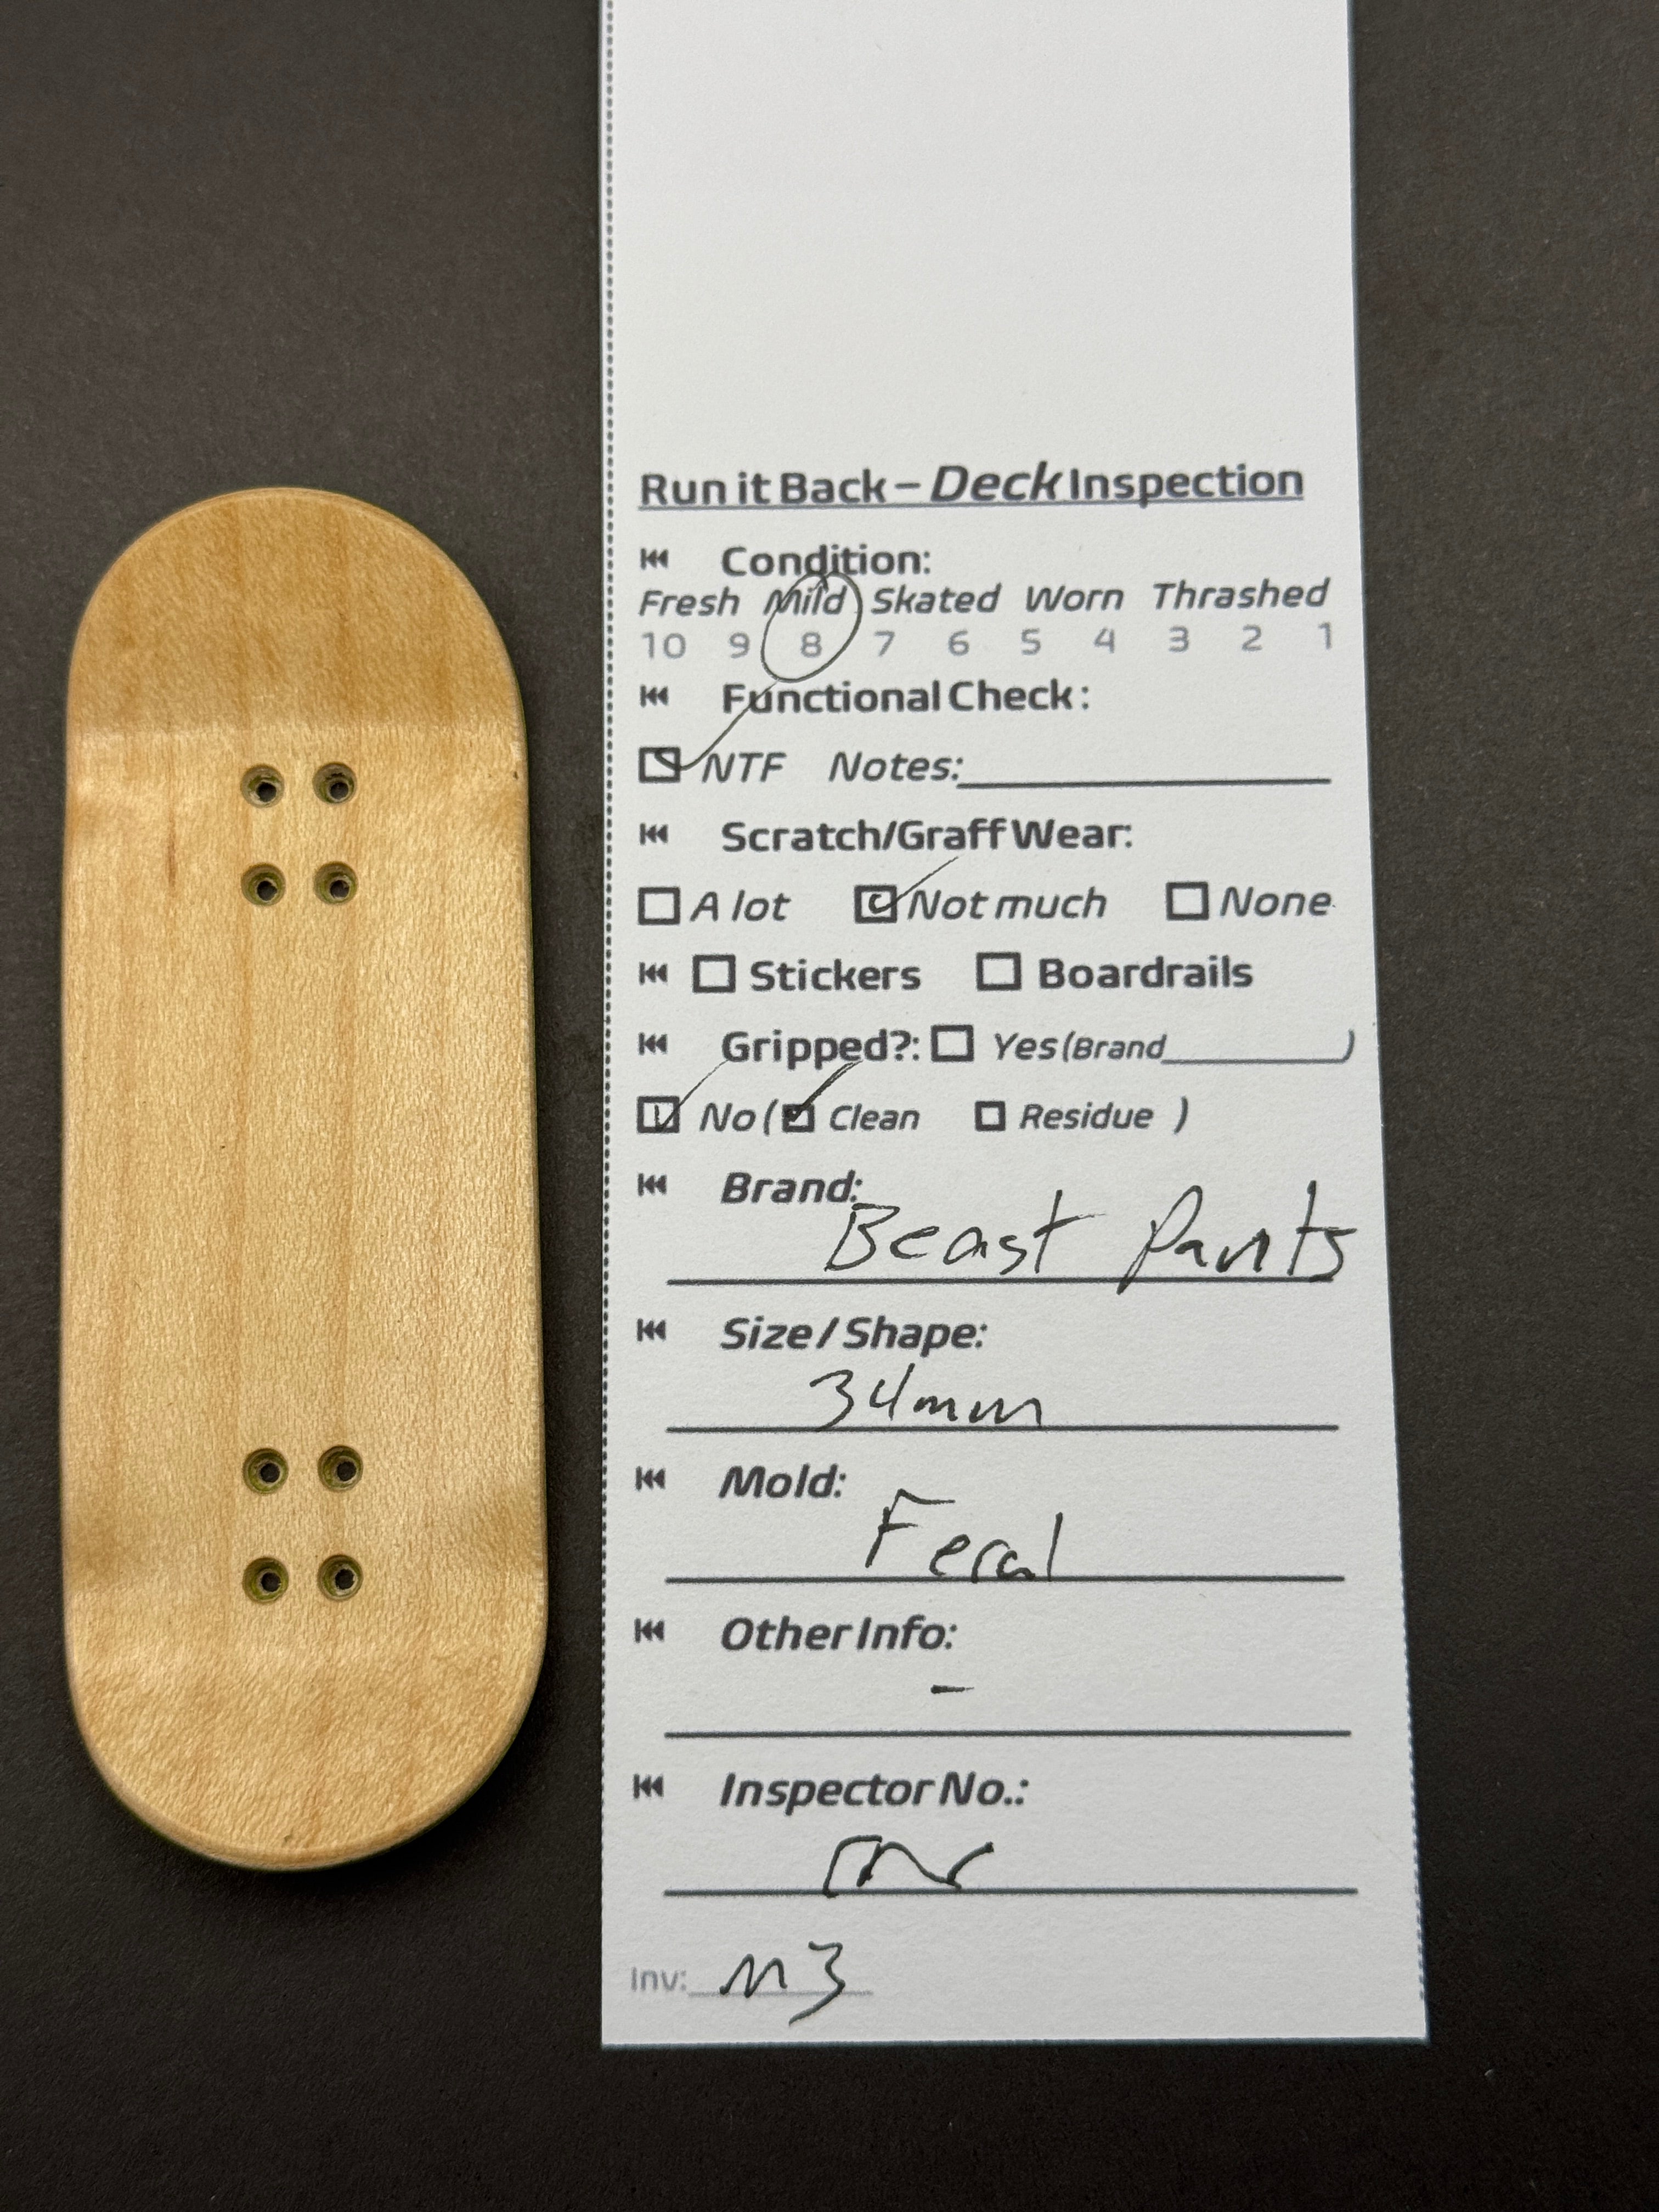 Run it Back – Deck Inspection
Condition:
Fresh Mild Skated Worn Thrashed
10 9 8 7 6 5 4 3 2 1
Functional Check:
NTF Notes:
Scratch/Graff Wear:
A lot Not much None
Stickers Boardrails
Gripped?: Yes (Brand )
No ( Clean Residue )
Brand:
Beast Pants
Size / Shape:
34mm
Mold:
Feral
Other Info:
-
Inspector No.:
Inv: M3